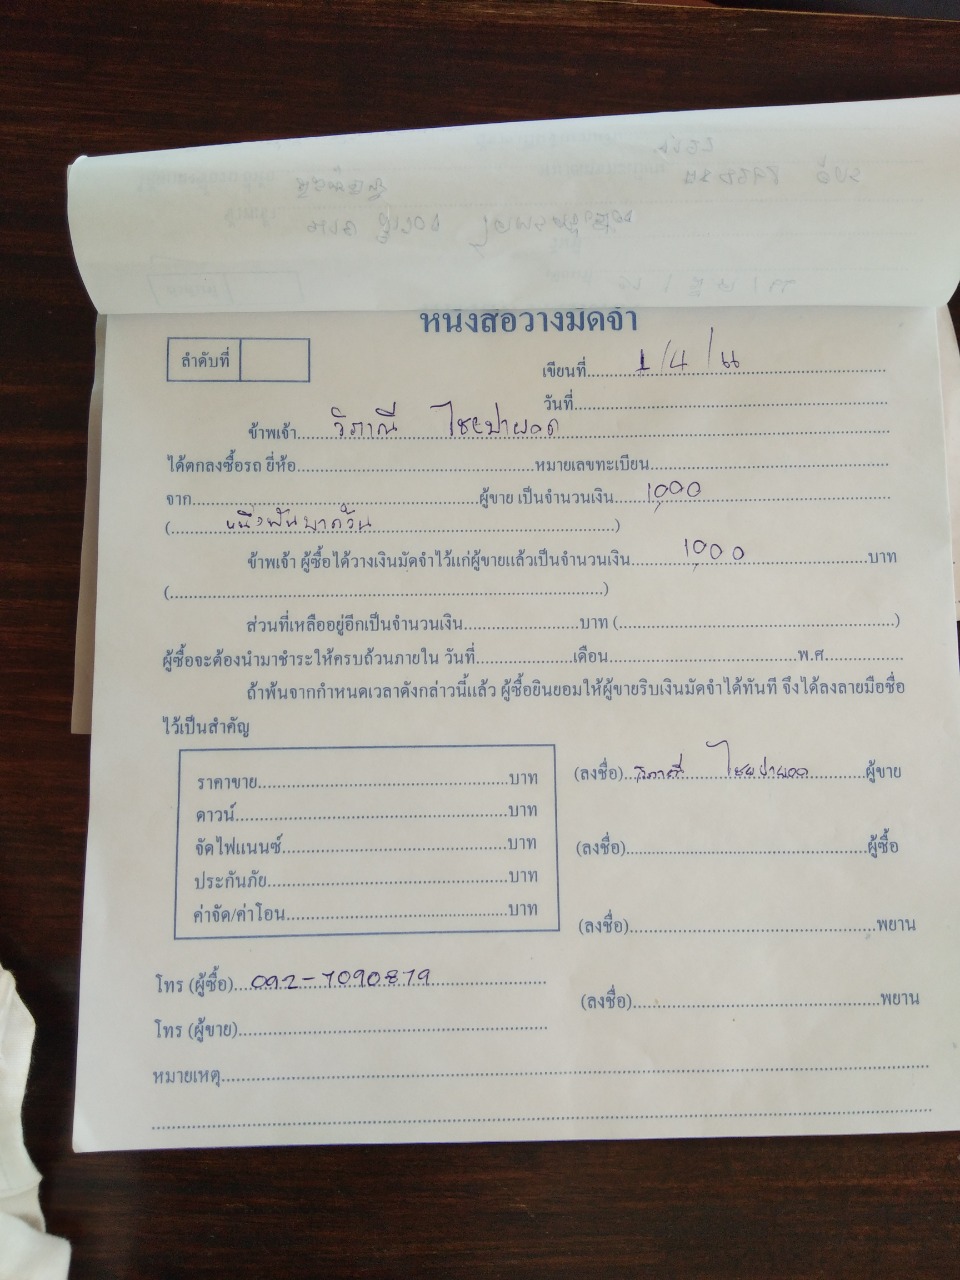 หนังสือวางมัดจำ
ลำดับที่
เขียนที่ 1/4/
วันที่
ข้าพเจ้า วิภาณี
ได้ตกลงซื้อรถ ยี่ห้อ หมายเลขทะเบียน
จาก ผู้ขาย เป็นจำนวนเงิน 1,000
( หนึ่งพันบาทถ้วน )
ข้าพเจ้า ผู้ซื้อได้วางเงินมัดจำไว้แก่ผู้ขายแล้วเป็นจำนวนเงิน 1,000 บาท
( )
ส่วนที่เหลืออยู่อีกเป็นจำนวนเงิน บาท ( )
ผู้ซื้อจะต้องนำมาชำระให้ครบถ้วนภายใน วันที่ เดือน พ.ศ.
ถ้าพ้นจากกำหนดเวลาดังกล่าวนี้แล้ว ผู้ซื้อยินยอมให้ผู้ขายริบเงินมัดจำได้ทันที จึงได้ลงลายมือชื่อ
ไว้เป็นสำคัญ
ราคาขาย บาท
ดาวน์ บาท
จัดไฟแนนซ์ บาท
ประกันภัย บาท
ค่าจัด/ค่าโอน บาท
(ลงชื่อ) วิภาณี ผู้ขาย
(ลงชื่อ) ผู้ซื้อ
(ลงชื่อ) พยาน
(ลงชื่อ) พยาน
โทร (ผู้ซื้อ) 092-7090879
โทร (ผู้ขาย)
หมายเหตุ